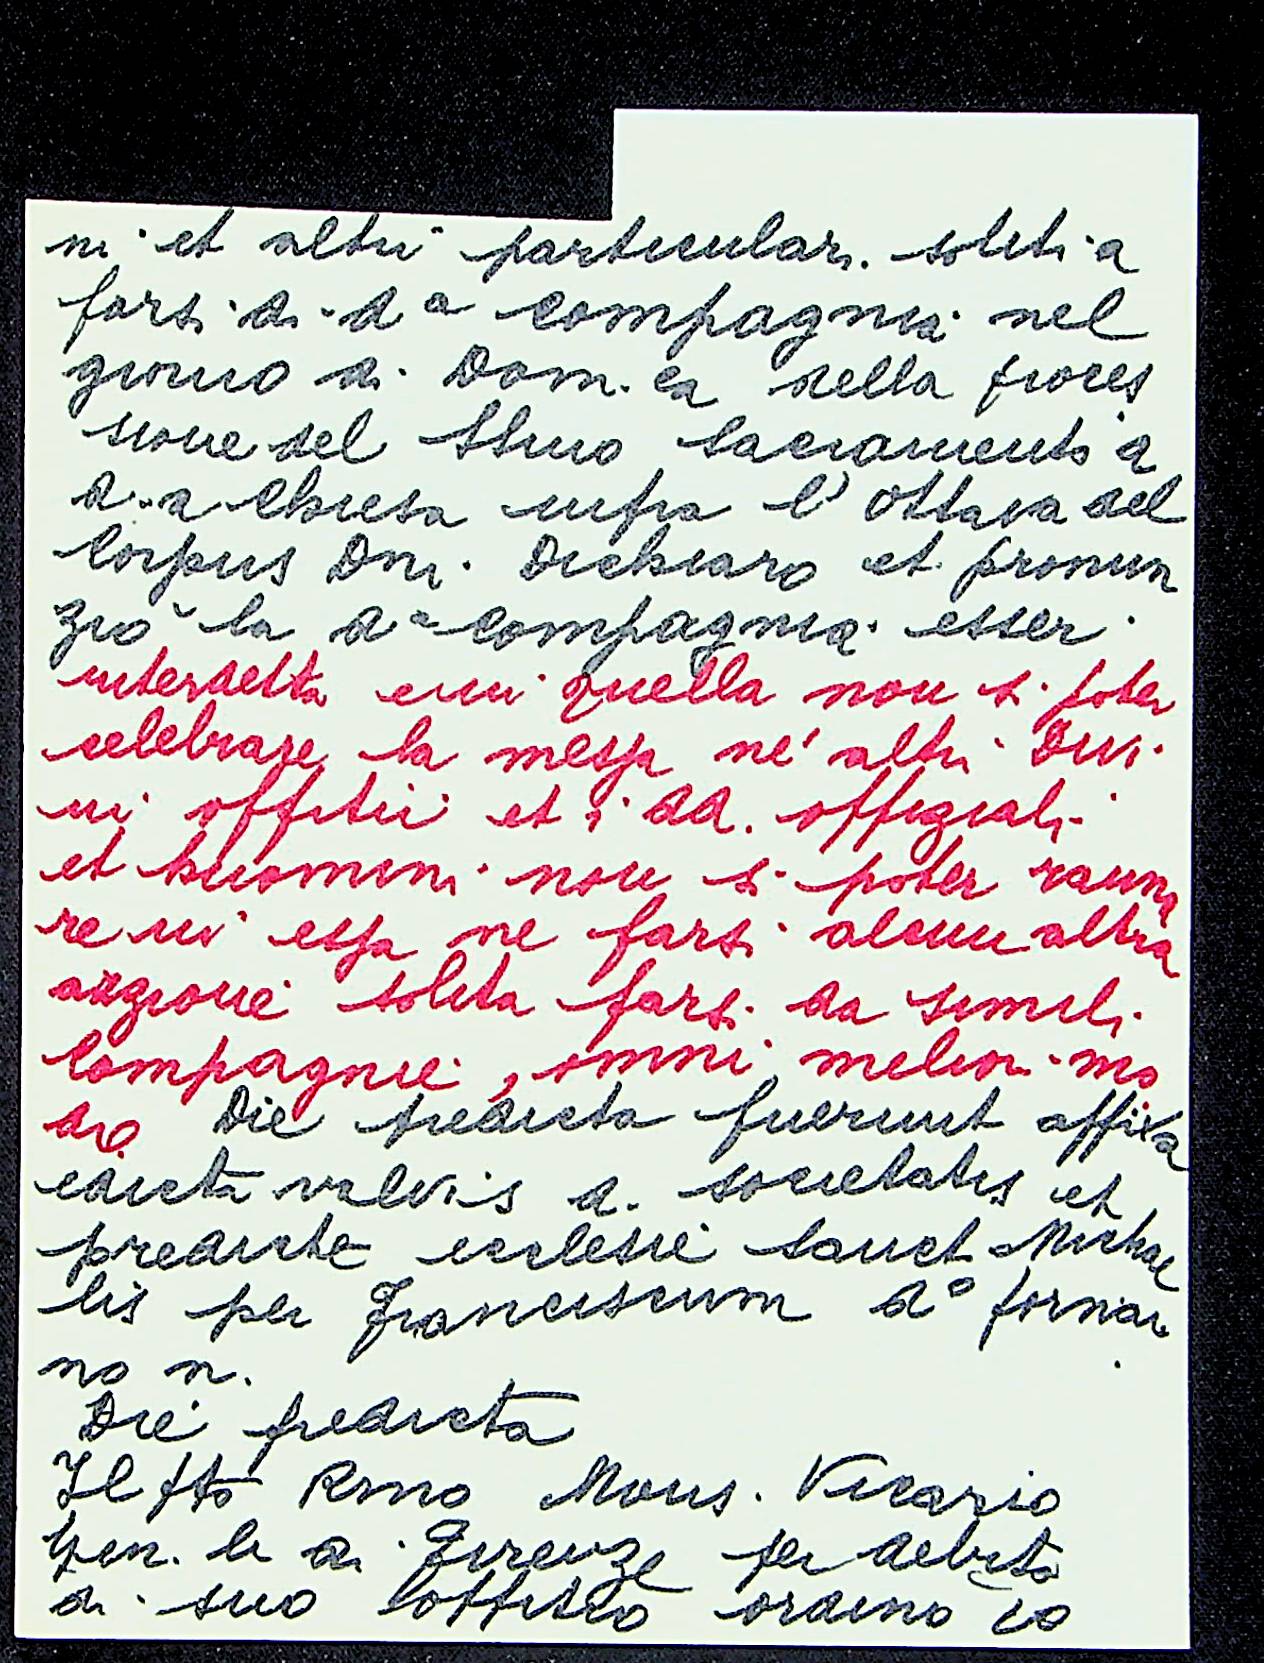 ni et altri particulari soliti a
farsi di d.a compagnia nel
giorno di Dom.ca della proces
sione del SSmo Sacramento a
d.a Chiesa infra l'ottava del
Corpus Dni. Dichiarò et pronun
ziò la d.a compagnia esser
interdetta e in quella non si poter
celebrare la messa né altri Divi
ni offitii et i dd. offiziali
et huomini non si poter rauna
re in essa ne farsi alcun altra
azzione solita farsi da simili
Compagnie, omni meliori mo
do. Die predicta fuerunt affixa
edicta valvis d. societatis et
predicte ecclesie Sanct Michae
lis per Franciscum d.o fornai
no n.
Die predicta
Il ftto Rmo Mons. Vicario
Gen.le di Firenze per debito
di suo Coffitio ordinò co